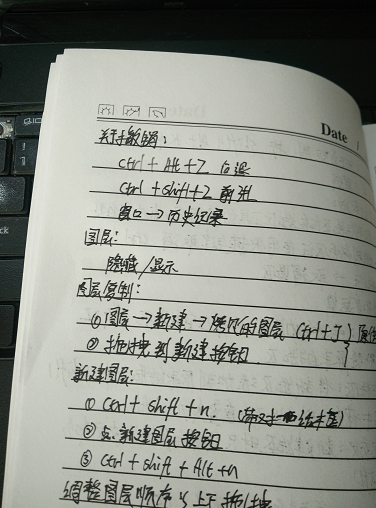 Date
关于撤销:
ctrl + Alt + Z 后退
ctrl + shift + Z 前进
窗口→历史记录
图层:
隐藏/显示
图层复制:
①图层→新建→拷贝的图层 (ctrl+J)
②拖拽到新建按钮
新建图层:
① ctrl + shift + n.
②点新建图层按钮
③ ctrl + shift + Alt + n
调整图层顺序 上下拖拽